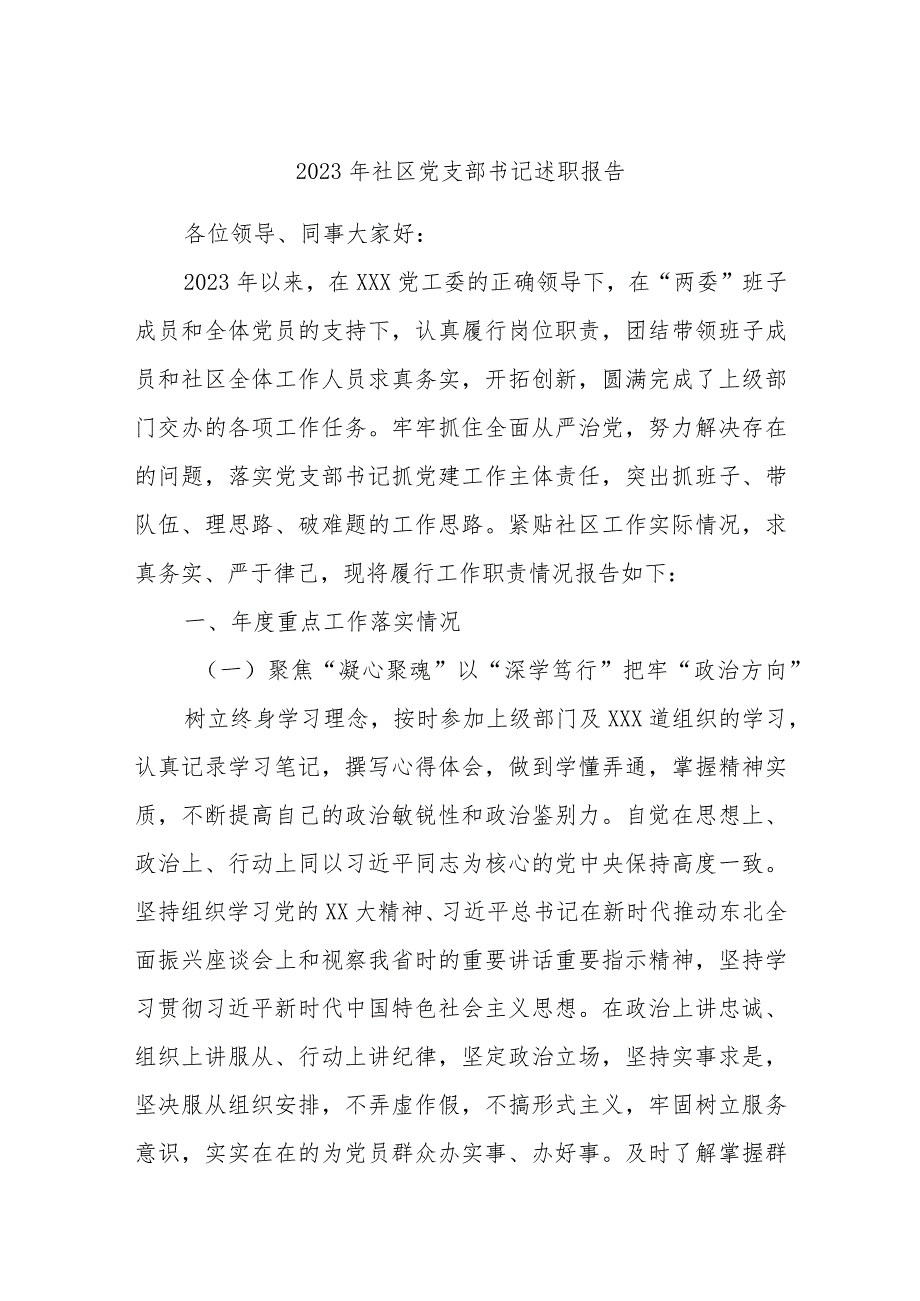 2023年社区党支部书记述职报告
各位领导、同事大家好：
2023年以来，在XXX党工委的正确领导下，在“两委”班子
成员和全体党员的支持下，认真履行岗位职责，团结带领班子成
员和社区全体工作人员求真务实，开拓创新，圆满完成了上级部
门交办的各项工作任务。牢牢抓住全面从严治党，努力解决存在
的问题，落实党支部书记抓党建工作主体责任，突出抓班子、带
队伍、理思路、破难题的工作思路。紧贴社区工作实际情况，求
真务实、严于律己，现将履行工作职责情况报告如下：
一、年度重点工作落实情况
（一）聚焦“凝心聚魂”以“深学笃行”把牢“政治方向”
树立终身学习理念，按时参加上级部门及XXX道组织的学习，
认真记录学习笔记，撰写心得体会，做到学懂弄通，掌握精神实
质，不断提高自己的政治敏锐性和政治鉴别力。自觉在思想上、
政治上、行动上同以习近平同志为核心的党中央保持高度一致。
坚持组织学习党的XX大精神、习近平总书记在新时代推动东北全
面振兴座谈会上和视察我省时的重要讲话重要指示精神，坚持学
习贯彻习近平新时代中国特色社会主义思想。在政治上讲忠诚、
组织上讲服从、行动上讲纪律，坚定政治立场，坚持实事求是，
坚决服从组织安排，不弄虚作假，不搞形式主义，牢固树立服务
意识，实实在在的为党员群众办实事、办好事。及时了解掌握群